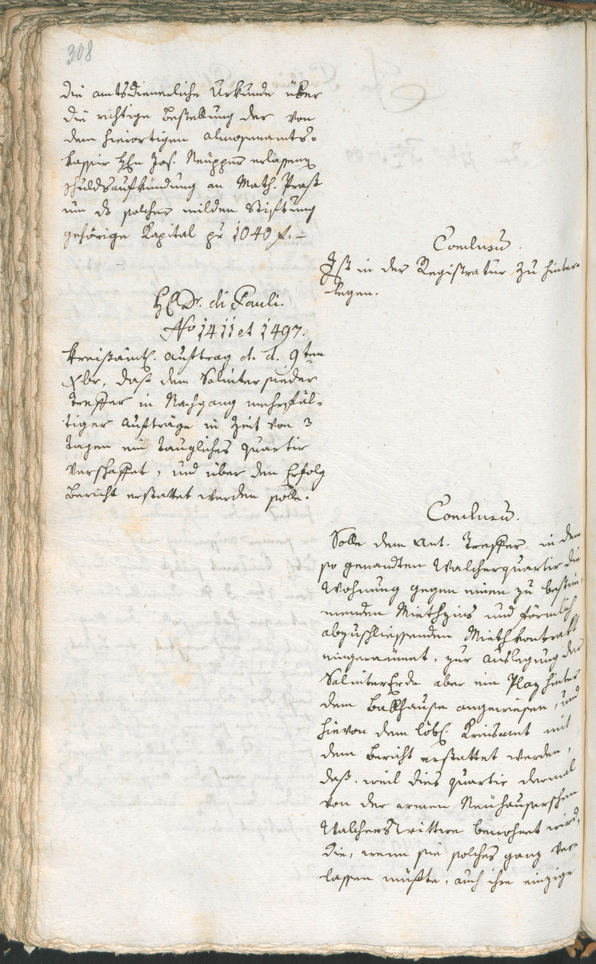 308
die amtsdienerliche Urkunde über
die richtige Bestellung der von
dem hierortigen Almosenamts-
Kassir Hhn Jos. Neupper erlassenen
Schuldsaufkündung an Math. Prast
um das solcher milden Stiftung
gehörige Kapital pr 1040 f.–
Conclusu.
Ist in der Registratur zu hinter-
legen.
H Dr. di Pauli.
No 1411 et 1497.
Kreißämtl. Auftrag d. d. 9ten
Xbr, daß dem Salitersieder
Treffer in Nachgang mehrfäl-
tiger Aufträge in Zeit von 3
Tagen ein taugliches Quartir
verschaffet, und über den Erfolg
Bericht erstattet werden solle.
Conclusu.
Solle dem Ant. Treffer in dem
so genandten Walcherquartir die
Wohnung gegen einen zu bestim-
menden Miethzins und förmlich
abzuschliessenden Miethkontrakt
eingeraumt, zur Auslegung der
Saliter Erde aber ein Plaz hinter
dem Ballhause angewiesen, und
hievon dem löbl. Kreisamt mit
dem Bericht erstattet werden,
daß, weil dies Quartir dermal
von der armen Neuhauserschen
Walchers Wittwe bewohnet wird,
die, wenn sie solches ganz ver-
lassen müßte, auch ihre einzige